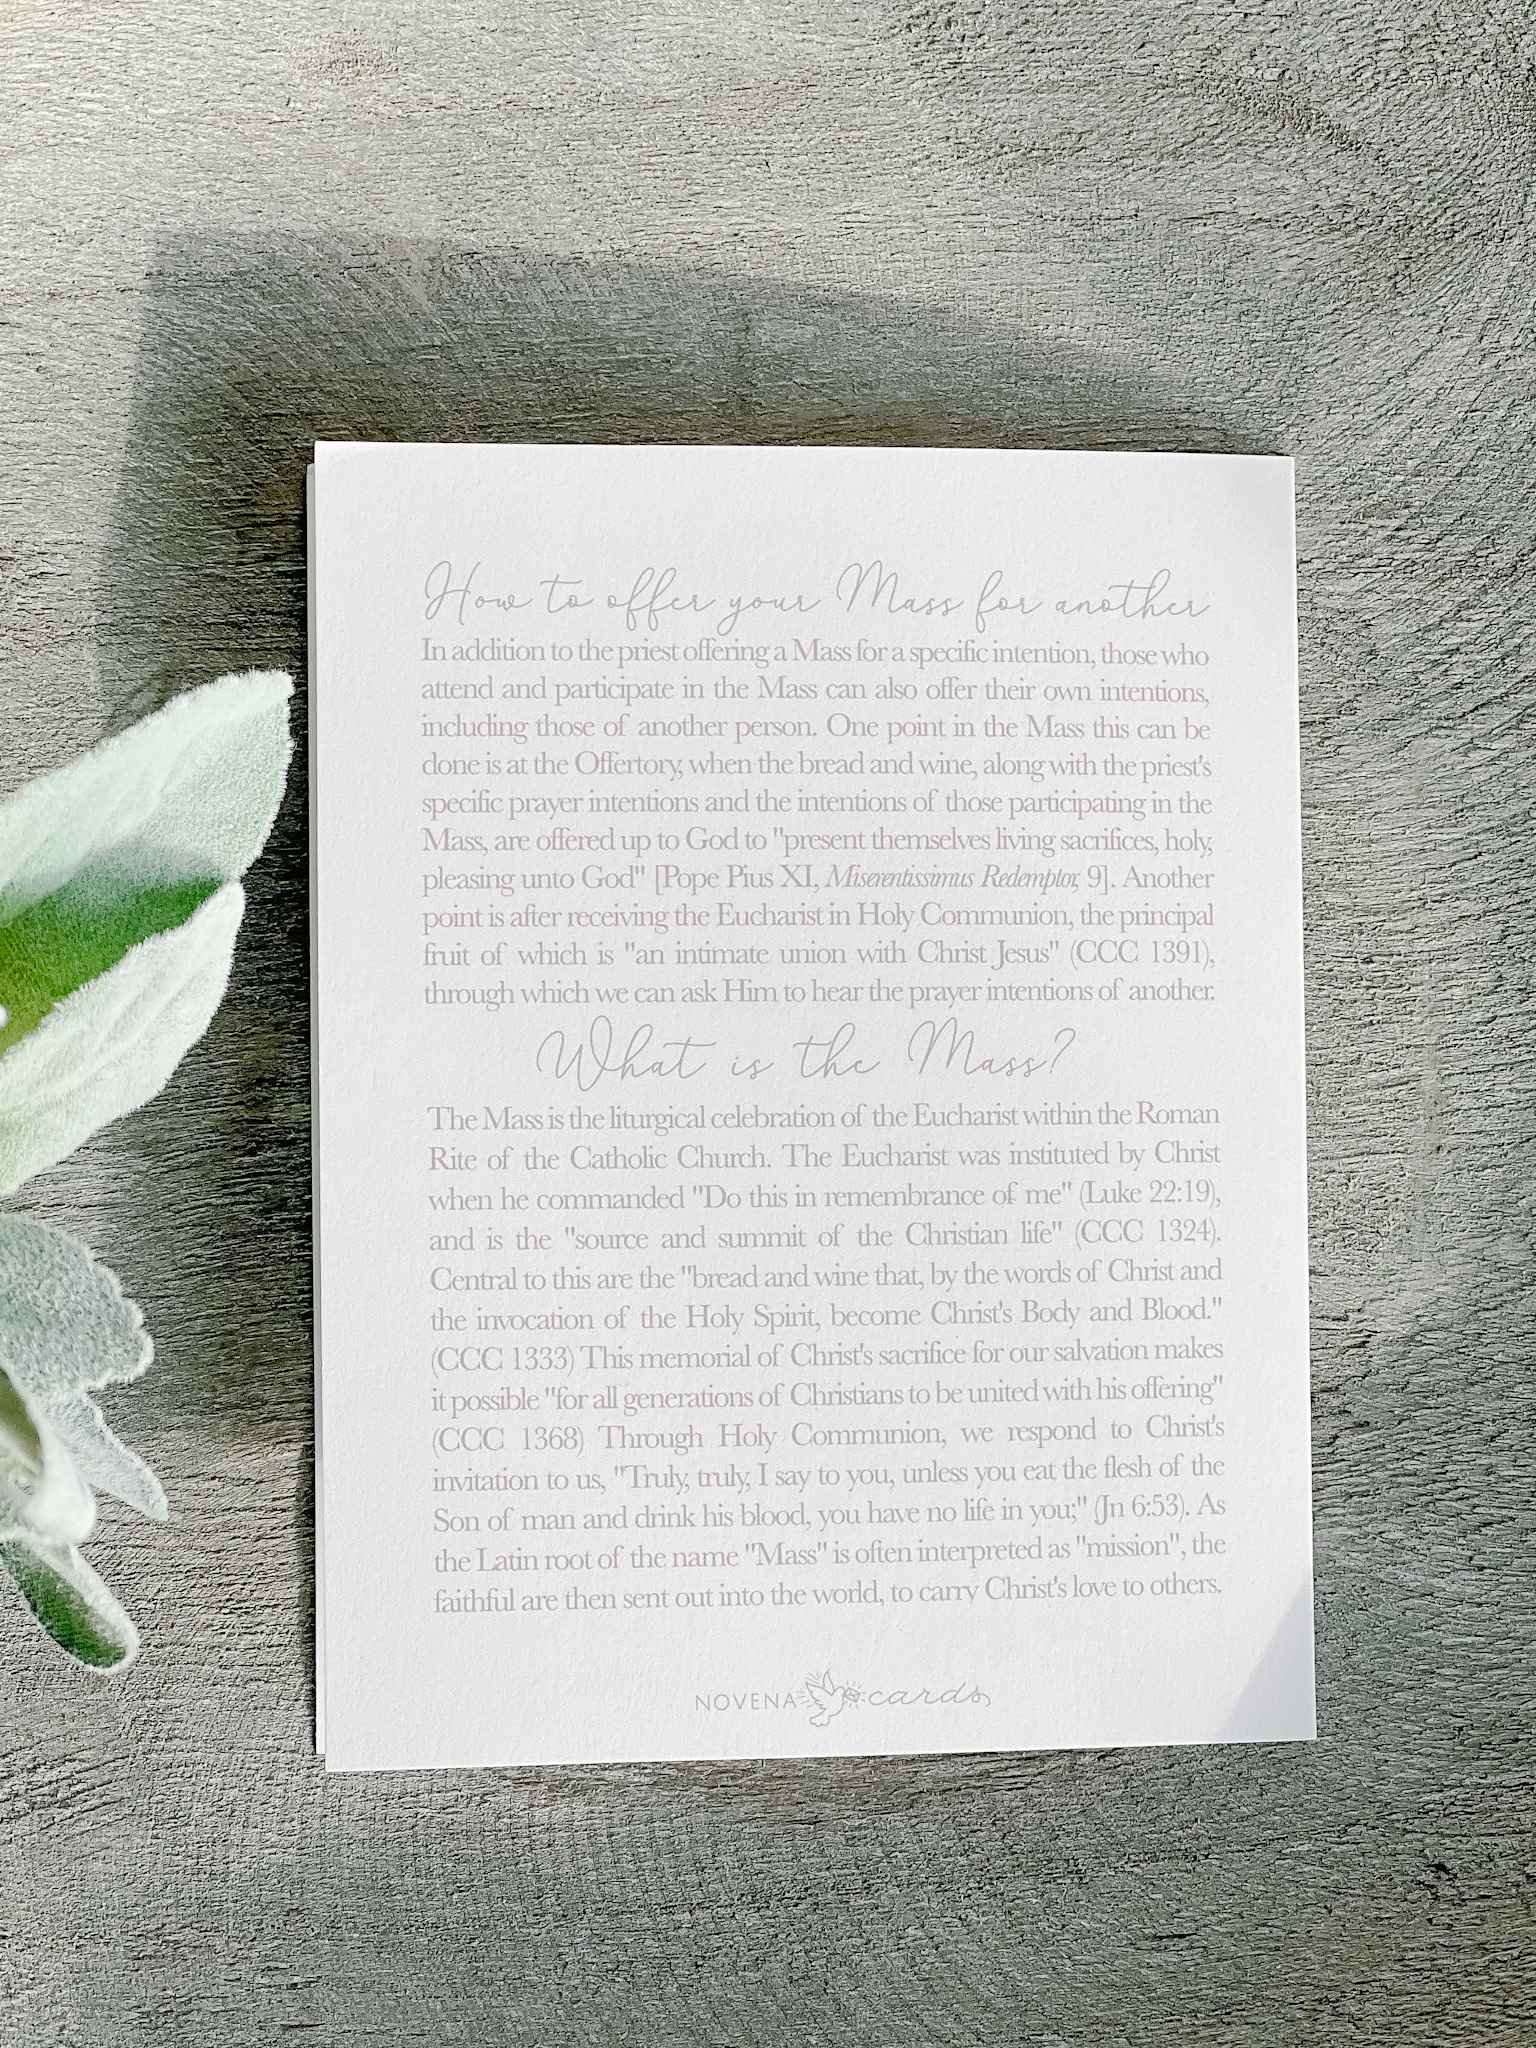 How to offer your Mass for another
In addition to the priest offering a Mass for a specific intention, those who
attend and participate in the Mass can also offer their own intentions,
including those of another person. One point in the Mass this can be
done is at the Offertory, when the bread and wine, along with the priest's
specific prayer intentions and the intentions of those participating in the
Mass, are offered up to God to "present themselves living sacrifices, holy,
pleasing unto God" [Pope Pius XI, Miserentissimus Redemptor, 9]. Another
point is after receiving the Eucharist in Holy Communion, the principal
fruit of which is "an intimate union with Christ Jesus" (CCC 1391),
through which we can ask Him to hear the prayer intentions of another.
What is the Mass?
The Mass is the liturgical celebration of the Eucharist within the Roman
Rite of the Catholic Church. The Eucharist was instituted by Christ
when he commanded "Do this in remembrance of me" (Luke 22:19),
and is the "source and summit of the Christian life" (CCC 1324).
Central to this are the "bread and wine that, by the words of Christ and
the invocation of the Holy Spirit, become Christ's Body and Blood."
(CCC 1333) This memorial of Christ's sacrifice for our salvation makes
it possible "for all generations of Christians to be united with his offering"
(CCC 1368) Through Holy Communion, we respond to Christ's
invitation to us, "Truly, truly, I say to you, unless you eat the flesh of the
Son of man and drink his blood, you have no life in you;" (Jn 6:53). As
the Latin root of the name "Mass" is often interpreted as "mission", the
faithful are then sent out into the world, to carry Christ's love to others.
NOVENA cards